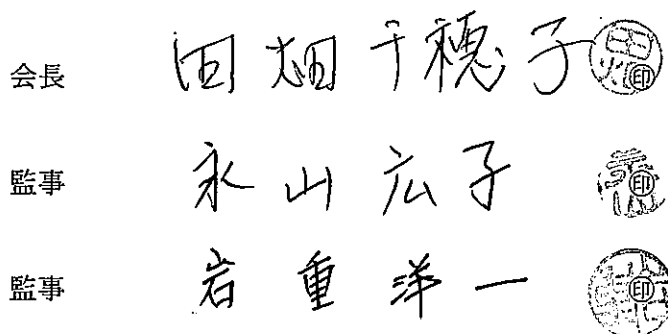 会長 田畑千穂子 ㊞
監事 永山広子 ㊞
監事 岩重洋一 ㊞